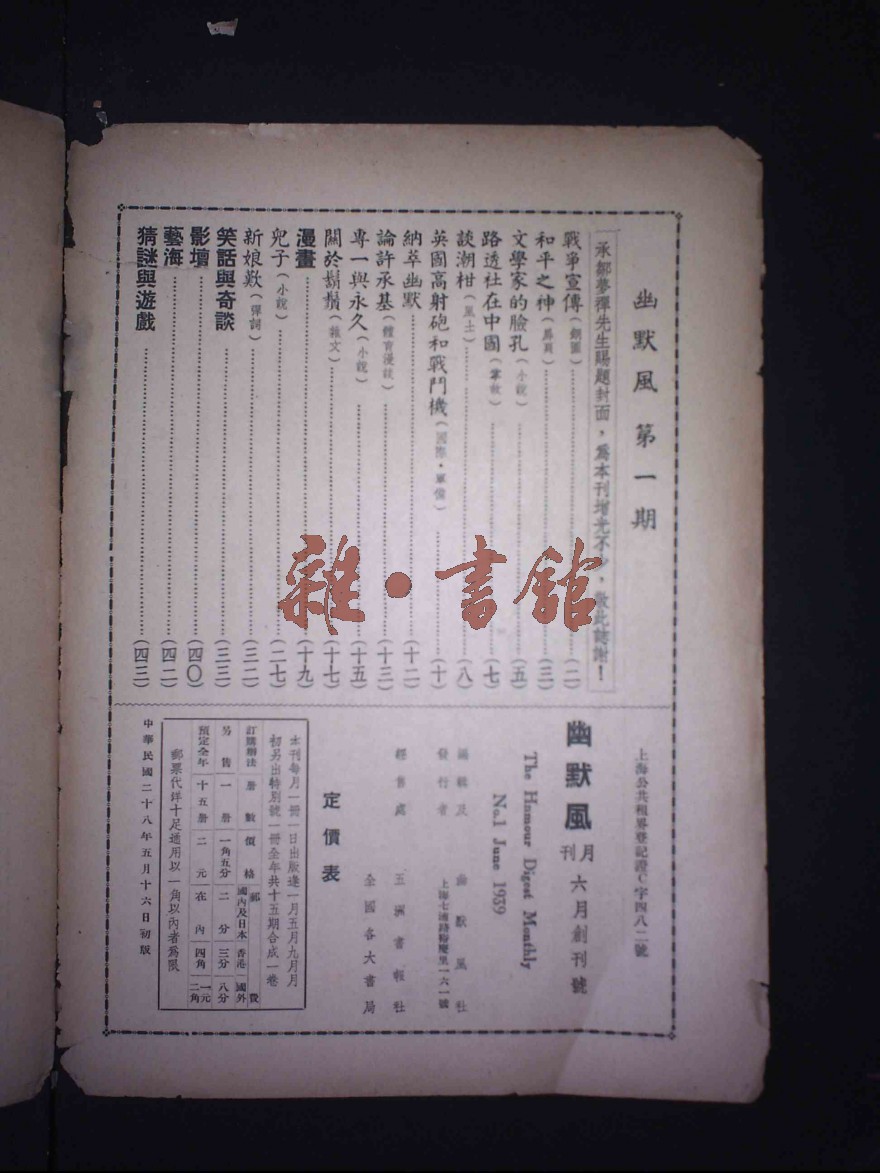 幽默風第一期
承鄒夢禪先生賜題封面，爲本刊增光不少，敬此誌謝！
戰爭宣傳（銅圖）（二）
和平之神（三）
文學家的臉孔（小説）（五）
路透社在中國（掌故）（七）
談潮柑（風土）（八）
英國高射砲和戰鬥機（國際·軍備）（十）
納萃幽默（十二）
論許承基（體育漫談）（十三）
專一與永久（小説）（十五）
關於鬍鬚（雜文）（十七）
漫畫（十九）
兒子（小説）（二七）
新娘歎（彈詞）（三二）
笑話與奇談（三三）
影壇（四〇）
藝海（四二）
猜謎與遊戲（四三）
上海公共租界登記證C字四八二號
幽默風月刊 六月創刊號
The Humour Digest Monthly
No.1 June 1939
編輯及發行者 幽默風社
上海七浦路裕慶里一六一號
經售處 五洲書報社
全國各大書局
定價表
本刊每月一册一日出版逢一月五月九月月
初另出特別號一冊全年共十五期合成一卷
訂購辦法 册數 價格 郵費 國內及日本 香港 國外
另售 一册 一角五分 二分 三分 八分
預定全年 十五册 二元 在內 四角 一元二角
郵票代洋十足通用以一角以內者爲限
中華民國二十八年五月十六日初版
雜·書館